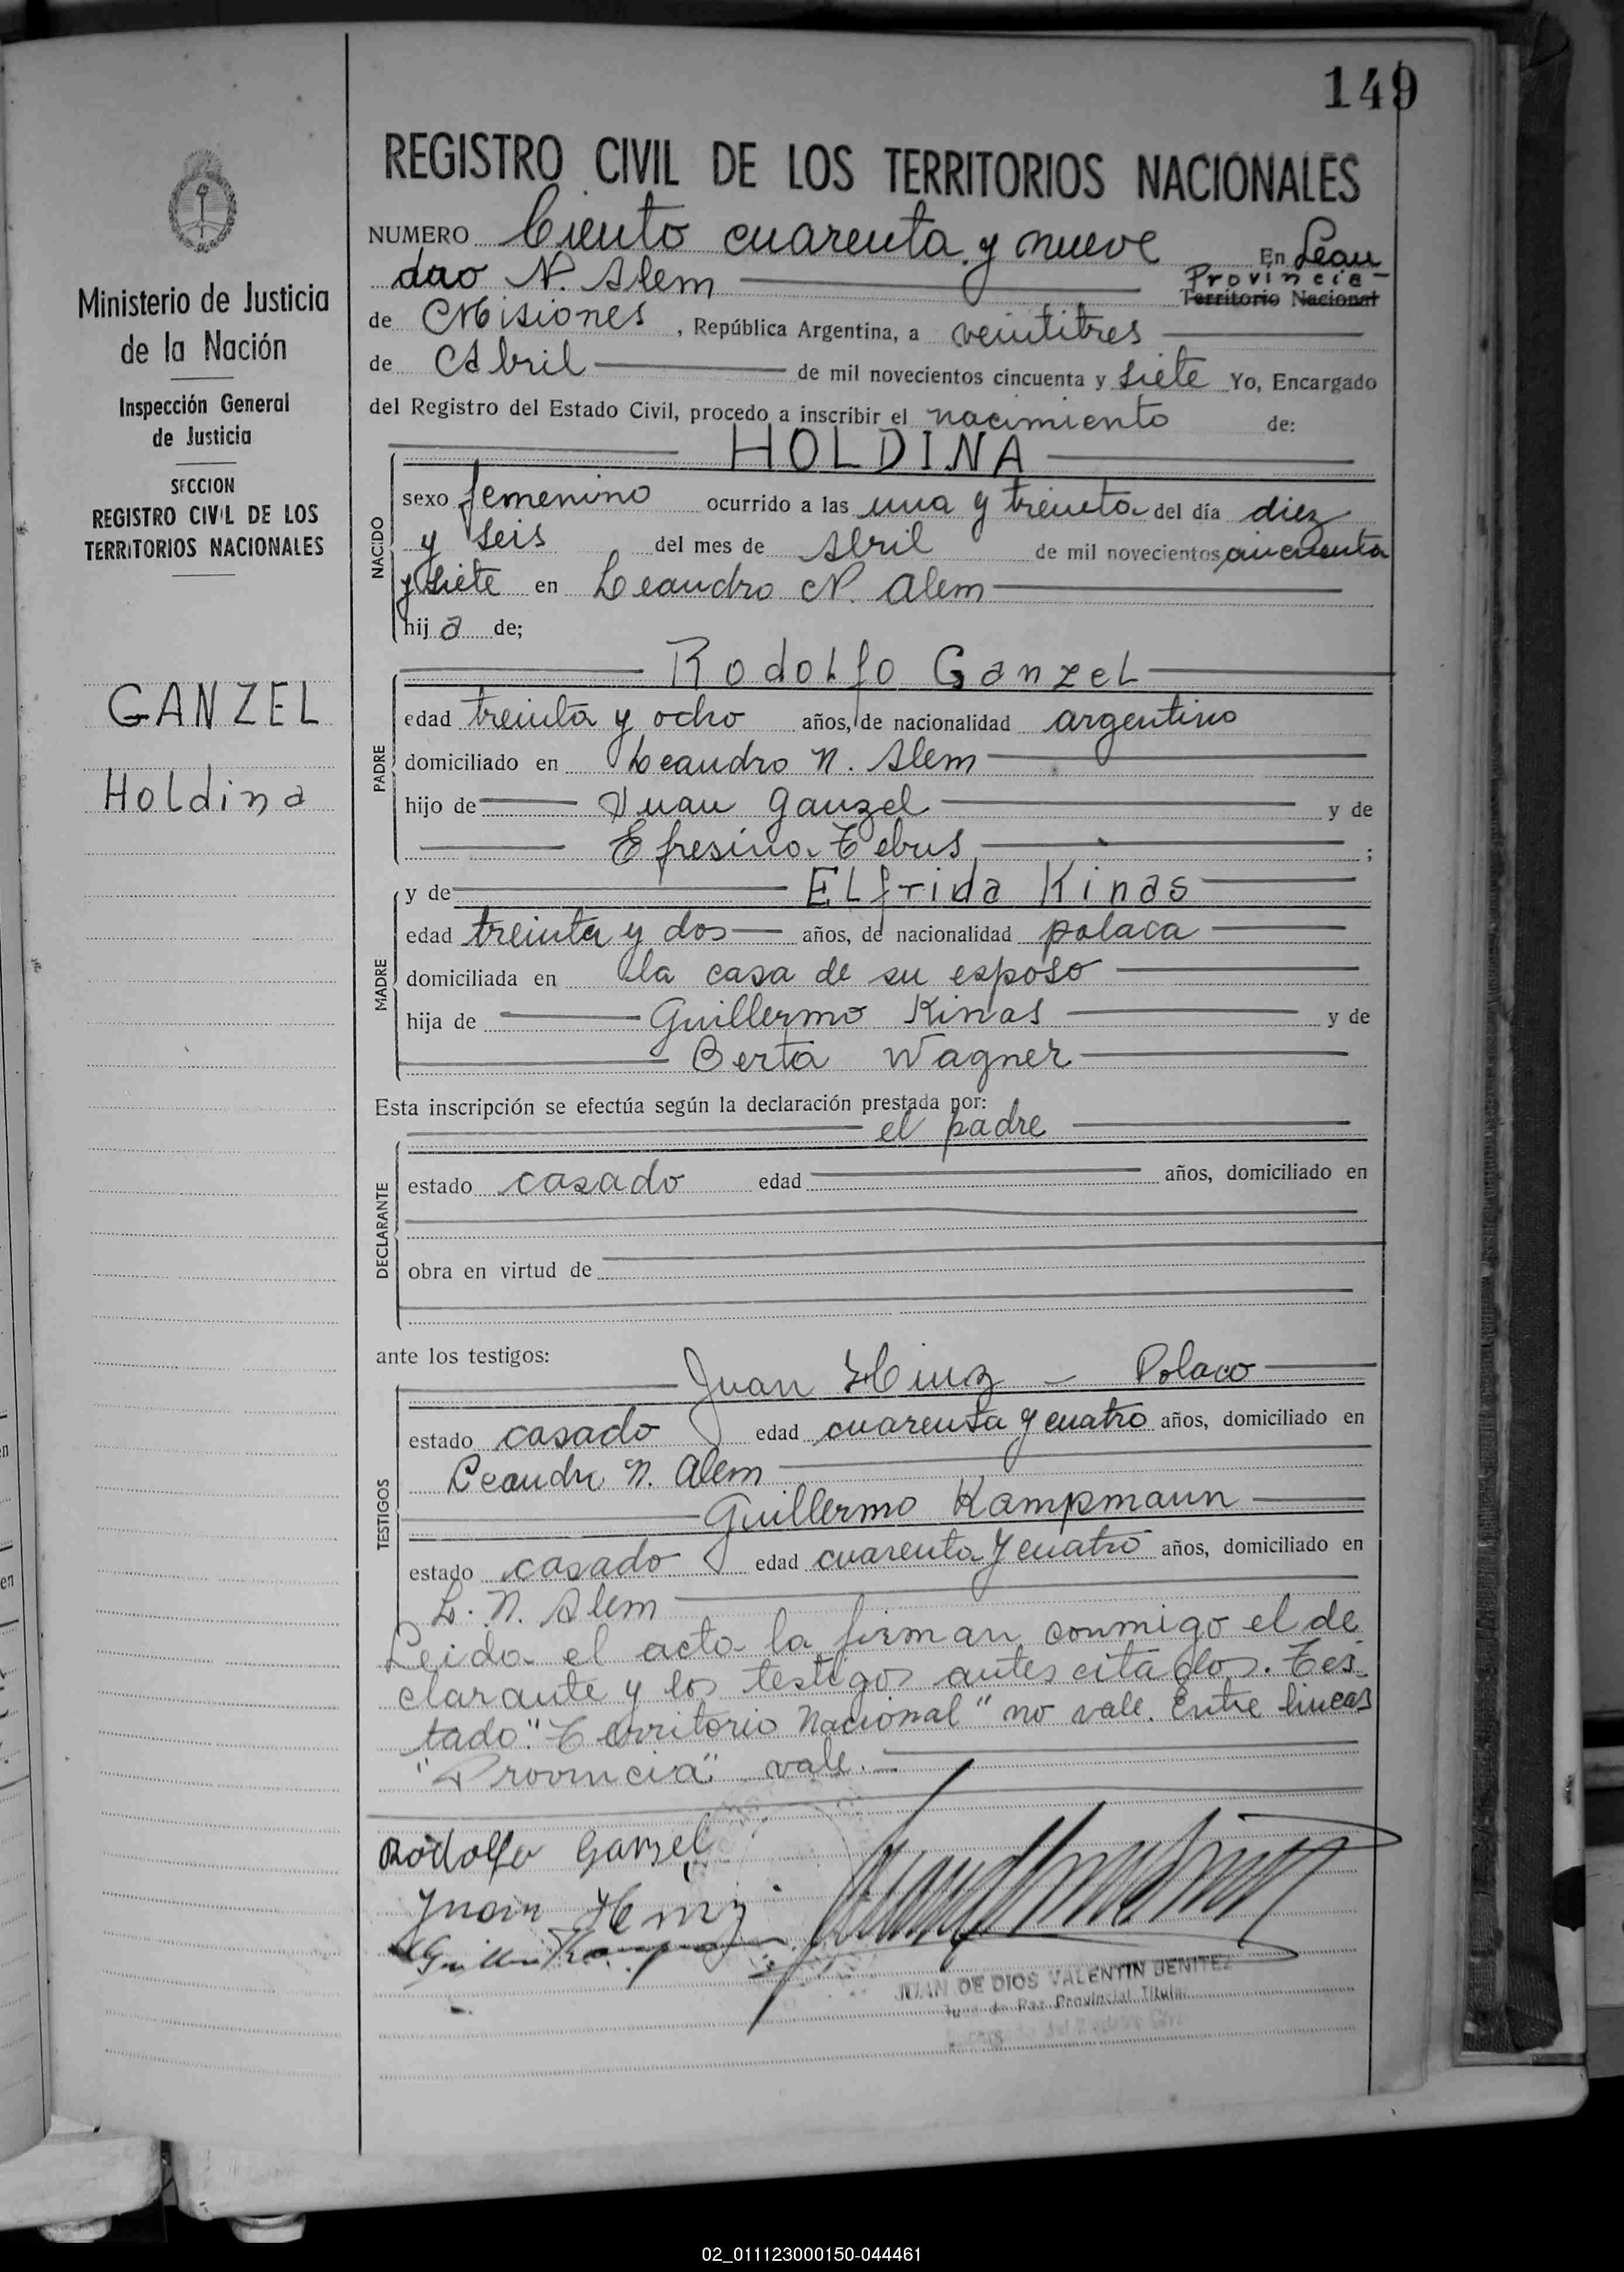 149
REGISTRO CIVIL DE LOS TERRITORIOS NACIONALES
NUMERO Ciento cuarenta y nueve En Lean
dro N. Alem Provincia
Territorio Nacional
de Misiones, República Argentina, a veintitres
de Abril de mil novecientos cincuenta y siete Yo, Encargado
del Registro del Estado Civil, procedo a inscribir el nacimiento de:
HOLDINA
NACIDO
sexo femenino ocurrido a las una y treinta del día diez
y seis del mes de Abril de mil novecientos cincuenta
y siete en Leandro N. Alem
hija de;
Rodolfo Ganzel
PADRE
edad treinta y ocho años, de nacionalidad argentino
domiciliado en Leandro N. Alem
hijo de Juan Ganzel y de
Efresina Tebus;
y de Elfrida Kinas
MADRE
edad treinta y dos años, de nacionalidad polaca
domiciliada en la casa de su esposo
hija de Guillermo Kinas y de
Berta Wagner
Esta inscripción se efectúa según la declaración prestada por:
el padre
DECLARANTE
estado casado edad años, domiciliado en
obra en virtud de
ante los testigos:
Juan Hinz - Polaco
TESTIGOS
estado casado edad cuarenta y cuatro años, domiciliado en
Leandro N. Alem
Guillermo Kampmann
estado casado edad cuarenta y cuatro años, domiciliado en
L. N. Alem
Leida el acta la firman conmigo el de
clarante y los testigos antes citados. Tes-
tado: "Territorio Nacional" no vale. Entre lineas
"Provincia" vale.
Rodolfo Ganzel
Juan Hinz
JUAN DE DIOS VALENTIN BENITEZ
Juez de Paz Provincial Titular
Encargado del Registro Civil
Ministerio de Justicia
de la Nación
Inspección General
de Justicia
SECCION
REGISTRO CIVIL DE LOS
TERRITORIOS NACIONALES
GANZEL
Holdina
02_011123000150-044461